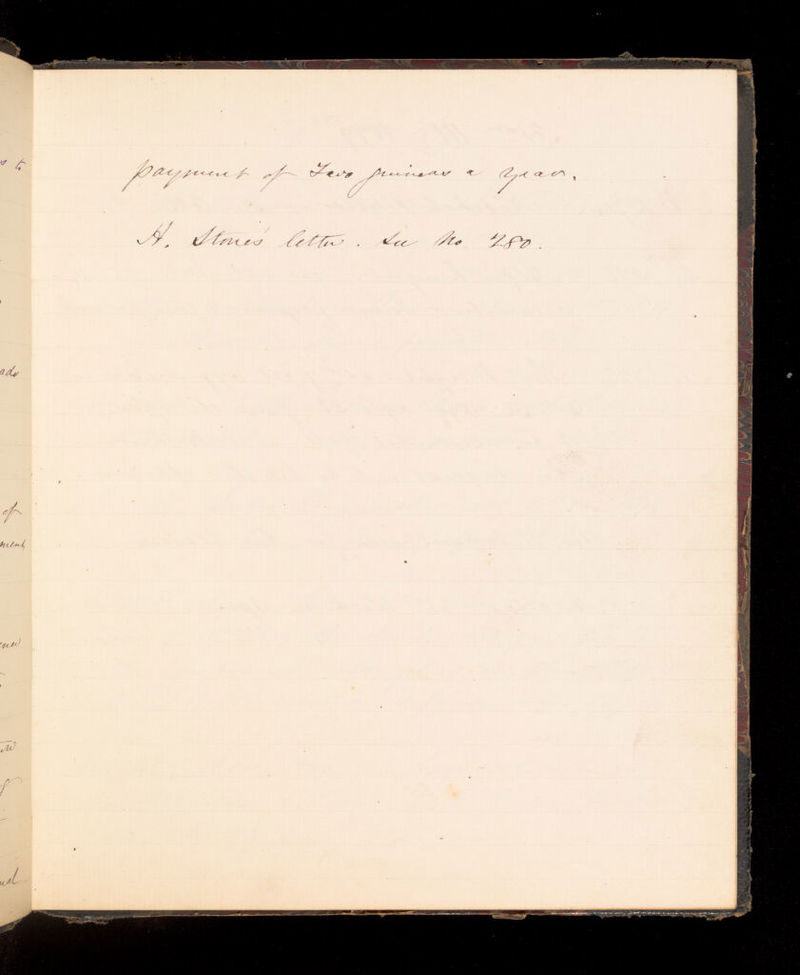 payment of Two guineas a year.
H. Stone's letter. See No 280.